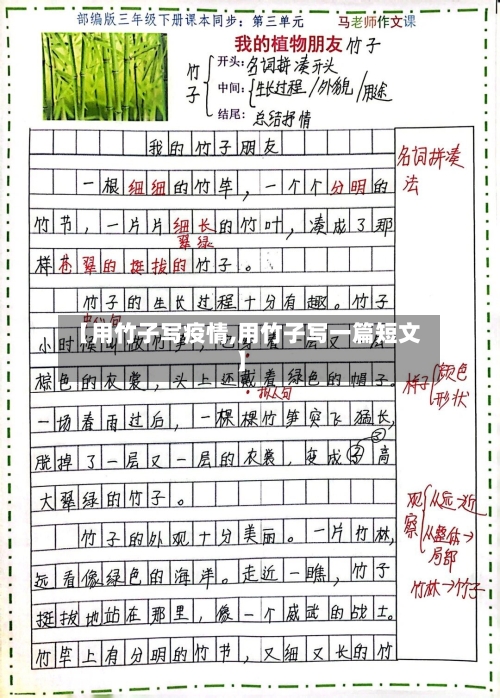 部编版三年级下册课本同步：第三单元
马老师作文课
我的植物朋友 竹子
竹子
开头：名词拼凑开头
中间：生长过程/外貌/用途
结尾：总结抒情
我的竹子朋友
一根细细的竹竿，一个个分明的
竹节，一片片细长的竹叶，凑成了那
翠绿
样苍翠的挺拔的竹子。
名词拼凑法
竹子的生长过程十分有趣。竹子
小时候
【用竹子写疫情,用竹子写一篇短文】
棕色的衣裳，头上还戴着绿色的帽子。
拟人句
样子 颜色 形状
一场春雨过后，一棵棵竹笋突飞猛长，
脱掉了一层又一层的衣裳，变成了高
大翠绿的竹子。
竹子的外观十分美丽。一片竹林，
远看像绿色的海洋。走近一瞧，竹子
挺拔地站在那里，像一个威武的战士。
竹竿上有分明的竹节，又细又长的竹
观察 从远→近
从整体→局部
竹林→竹子